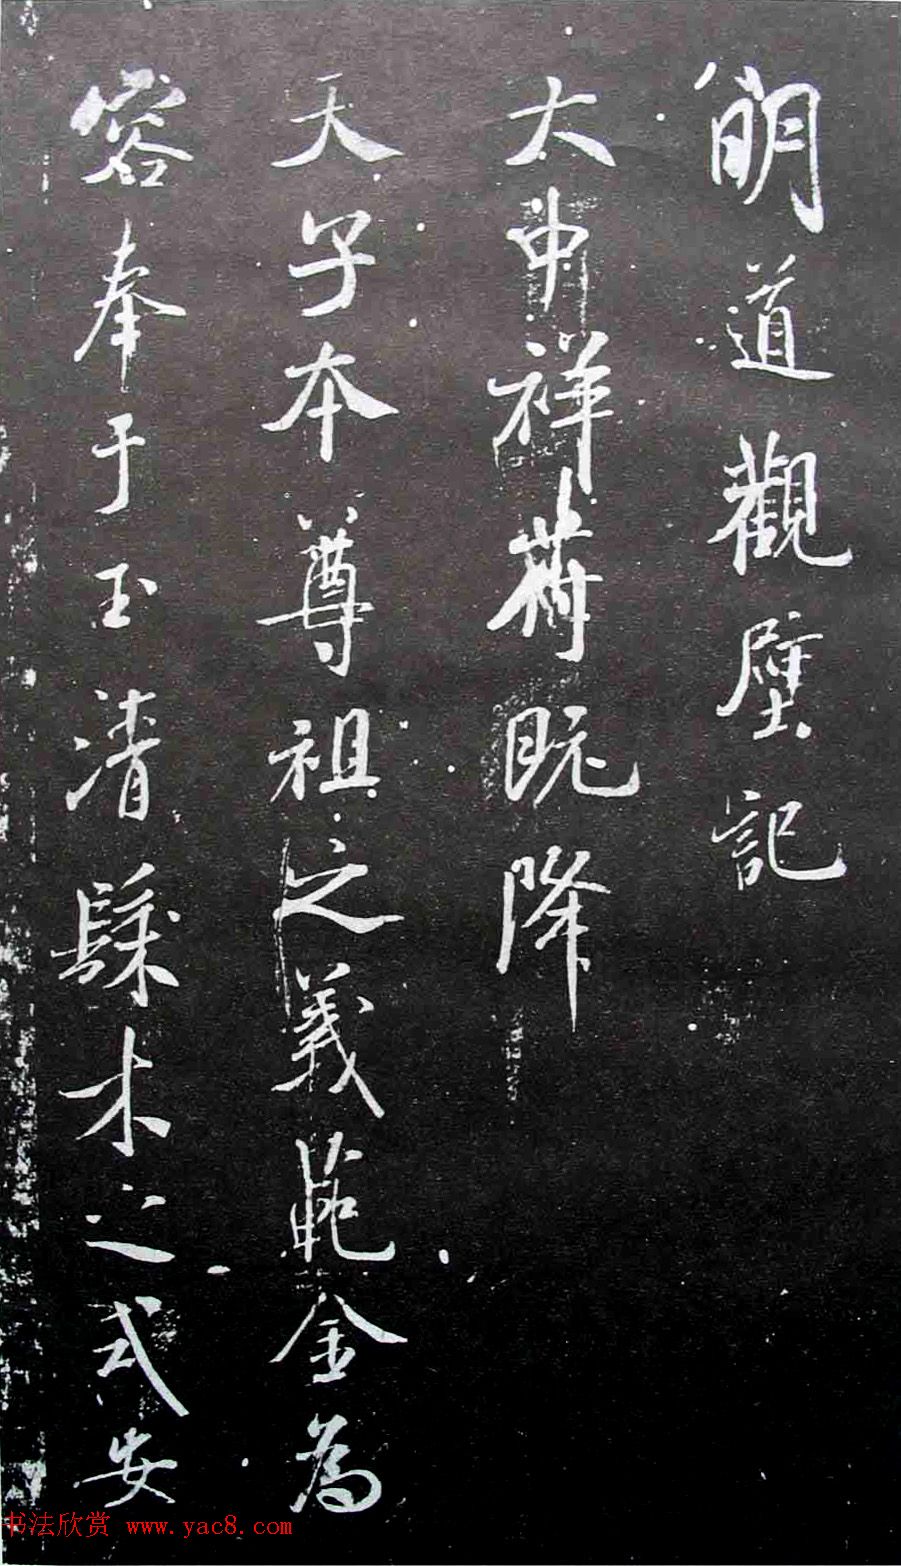 明道觀壁記
大中祥符既降
天子本尊祖之義範金為
容奉于玉清髹木之式安
书法欣赏 www.yac8.com